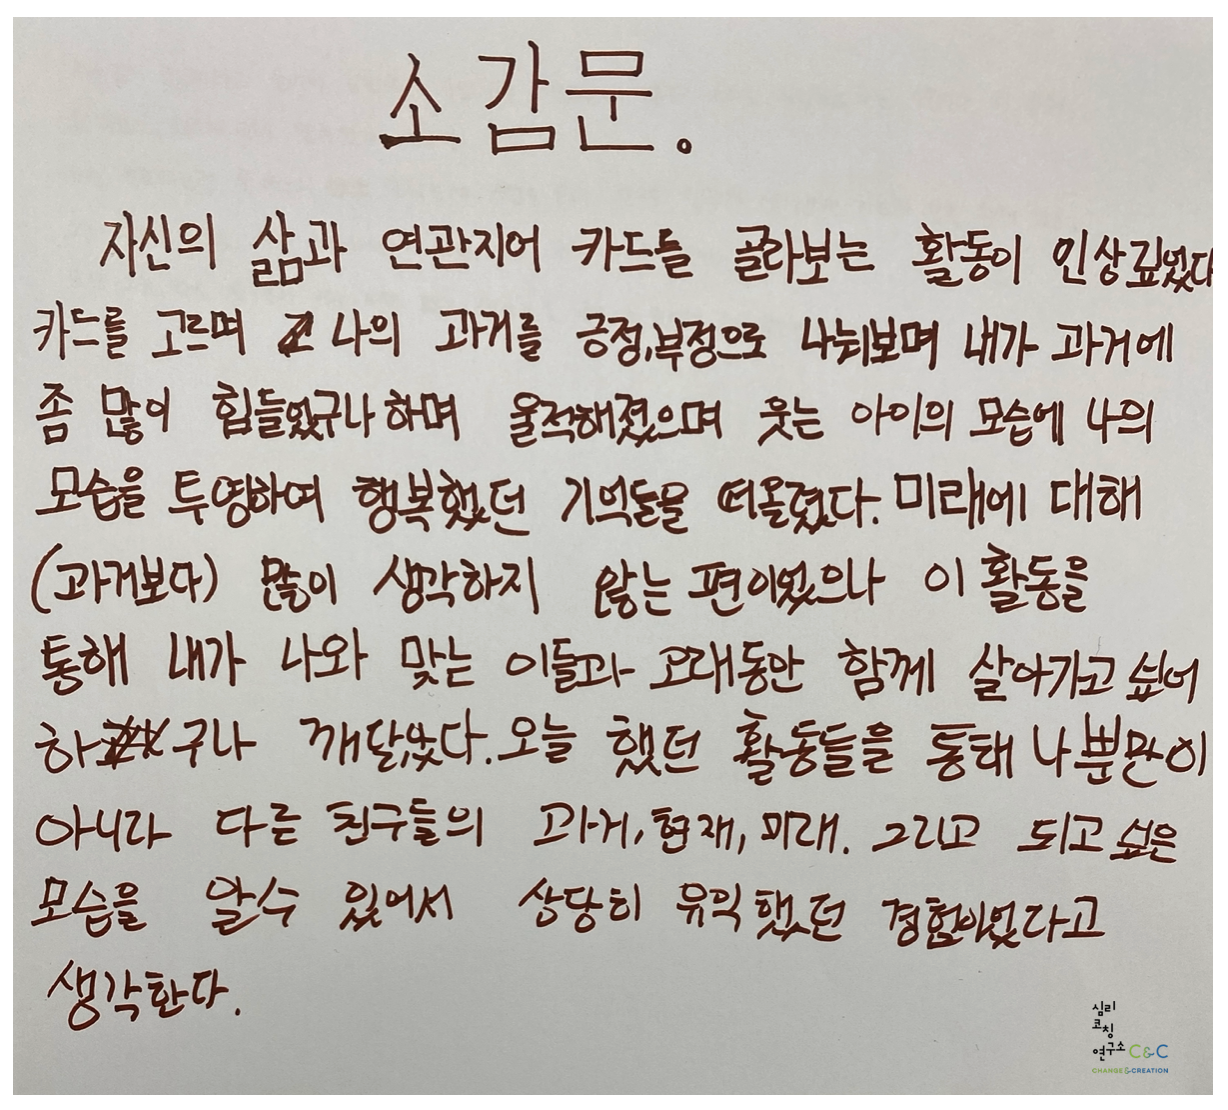 소감문.
자신의 삶과 연관지어 카드를 골라보는 활동이 인상깊었다
카드를 고르며 나의 과거를 긍정,부정으로 나눠보며 내가 과거에
좀 많이 힘들었구나 하며 울적해졌으며 웃는 아이의 모습에 나의
모습을 투영하여 행복했던 기억들을 떠올렸다. 미래에 대해
(과거보다) 많이 생각하지 않는 편이었으나 이 활동을
통해 내가 나와 맞는 이들과 오래동안 함께 살아가고 싶어
하구나 깨달았다. 오늘 했던 활동들을 통해 나뿐만이
아니라 다른 친구들의 과거, 현재, 미래. 그리고 되고 싶은
모습을 알수 있어서 상당히 유익했던 경험이었다고
생각한다.
심리
코칭
연구소 C&C
CHANGE&CREATION